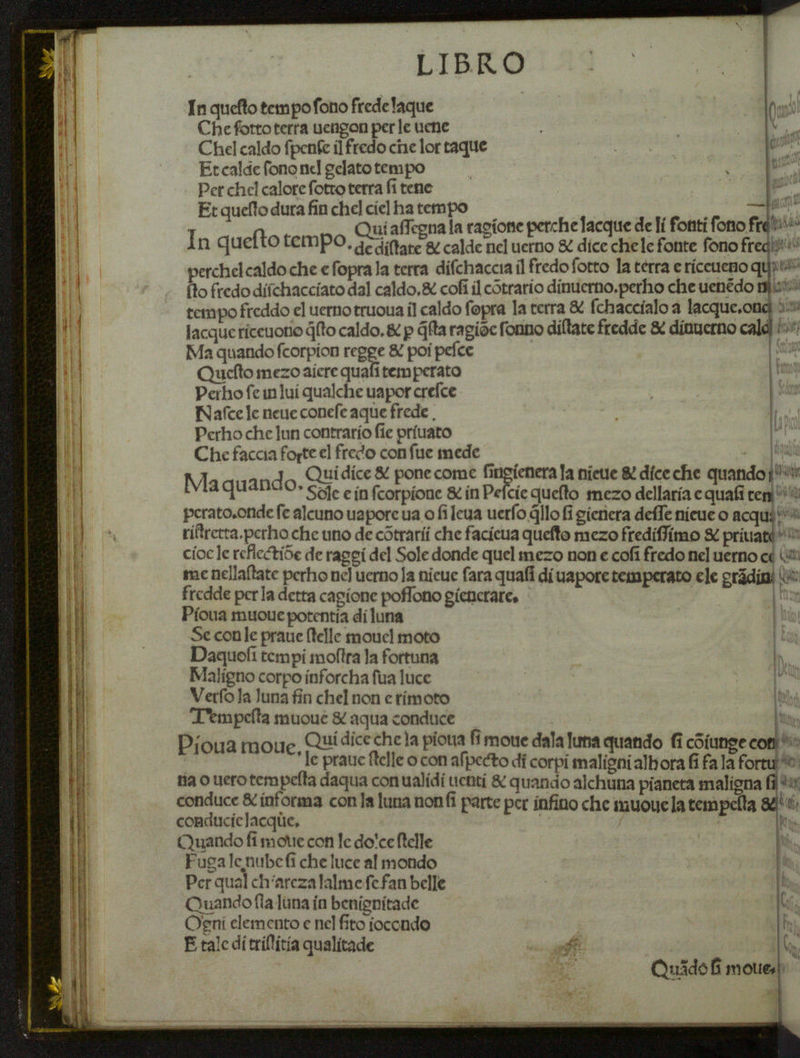 LIBRO
In queſto tempo ſono frede laque
Che ſotto terra uengon per le uene
Chel caldo ſpenſe il fredo che lor taque
Et calde ſono nel gelato tempo
Per chel calore ſotto terra ſi tene
Et queſto dura fin chel ciel ha tempo
In queſto tempo. Qui aſſegna la ragione perche lacque de li fonti ſono fre
de diſtate & calde nel uerno & dice che le fonte ſono fred
perchel caldo che e ſopra la terra diſchaccia il fredo ſotto la terra e riceueno qu
ſto fredo diſchacciato dal caldo.& coſi il cõtrario dinuerno.perho che uenẽdo il
tempo freddo el uerno truoua il caldo ſopra la terra & ſchaccialo a lacque.ond
lacque riceuono q̃ſto caldo.& p q̃ſta ragiõe ſonno diſtate fredde & dinuerno cald
Ma quando ſcorpion regge & poi peſce
Queſto mezo aiere quaſi temperato
Perho ſe in lui qualche uapor creſce
Naſce le neue coneſe aque frede.
Perho che lun contrario ſie priuato
Che faccia forte el fredo con ſue mede
Ma quando. Qui dice & pone come ſingienera la nieue & dice che quando
Sole e in ſcorpione & in Peſcie queſto mezo dellaria e quaſi tem
perato.onde ſe alcuno uapore ua o ſi leua uerſo q̃llo ſi gienera deſſe nieue o acqu
riſtretta.perho che uno de cõtrarii che facieua queſto mezo frediſſimo & priuat
cioe le reflectiõe de raggi del Sole donde quel mezo non e coſi fredo nel uerno co
me nellaſtate perho nel uerno la nieue fara quaſi di uapore temperato ele grãdin
fredde per la detta cagione poſſono gienerare.
Pioua muoue potentia di luna
Se con le praue ſtelle mouel moto
Daquoſi tempi moſtra la fortuna
Maligno corpo inforcha ſua luce
Verſo la luna fin chel non e rimoto
Tempeſta muoue & aqua conduce
Pioua moue. Qui dice che la pioua ſi moue dala luna quando ſi cõiunge con
le praue ſtelle o con aſpecto di corpi maligni alhora ſi fa la fortu
na o uero tempeſta daqua con ualidi uenti & quando alchuna pianeta maligna ſi
conduce & informa con la luna non ſi parte per infino che muoue la tempeſta &
conducie lacque.
Quando ſi moue con le dolce ſtelle
Fuga le nube ſi che luce al mondo
Per qual chiareza lalme ſe fan belle
Quando ſta luna in benignitade
Ogni elemento e nel ſito iocondo
E tale di triſtitia qualitade
Quãdo ſi moue.